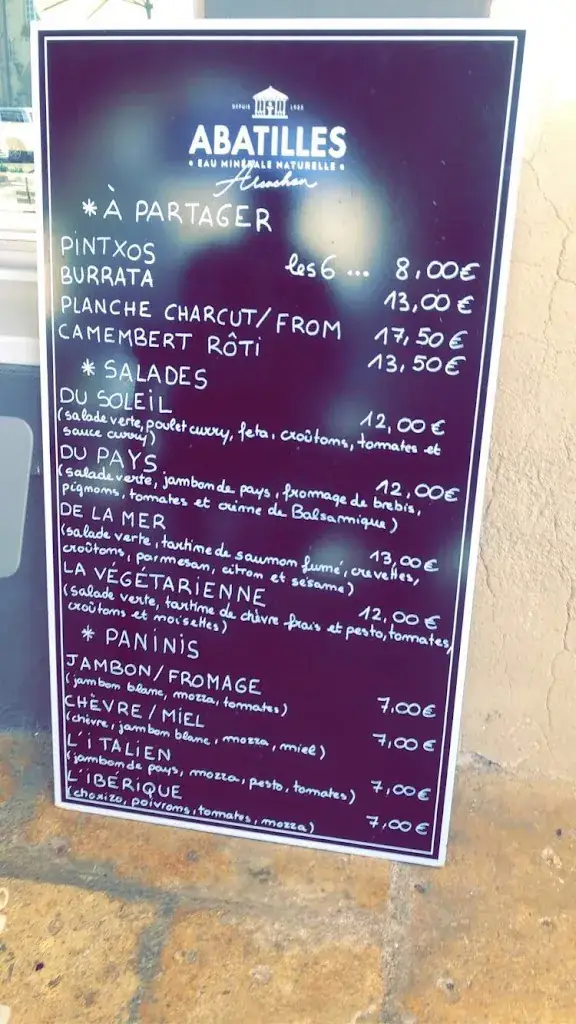 DEPUIS 1925
ABATILLES
• EAU MINÉRALE NATURELLE •
Arcachon
* À PARTAGER
PINTXOS les 6 ... 8,00€
BURRATA 13,00€
PLANCHE CHARCUT/FROM 17,50€
CAMEMBERT RÔTI 13,50€
* SALADES
DU SOLEIL 12,00€
(salade verte, poulet curry, feta, croûtons, tomates et
sauce curry)
DU PAYS 12,00€
(salade verte, jambon de pays, fromage de brebis,
pignons, tomates et crème de Balsamique)
DE LA MER 13,00€
(salade verte, tartine de saumon fumé, crevettes,
croûtons, parmesan, citron et sésame)
LA VÉGÉTARIENNE 12,00€
(salade verte, tartine de chèvre frais et pesto, tomates,
croûtons et noisettes)
* PANINIS
JAMBON/FROMAGE 7,00€
(jambon blanc, mozza, tomates)
CHÈVRE/MIEL 7,00€
(chèvre, jambon blanc, mozza, miel)
L'ITALIEN 7,00€
(jambon de pays, mozza, pesto, tomates)
L'IBÉRIQUE 7,00€
(chorizo, poivrons, tomates, mozza)